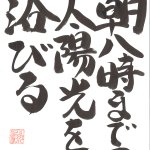 朝八時まで
太陽光を
浴びる